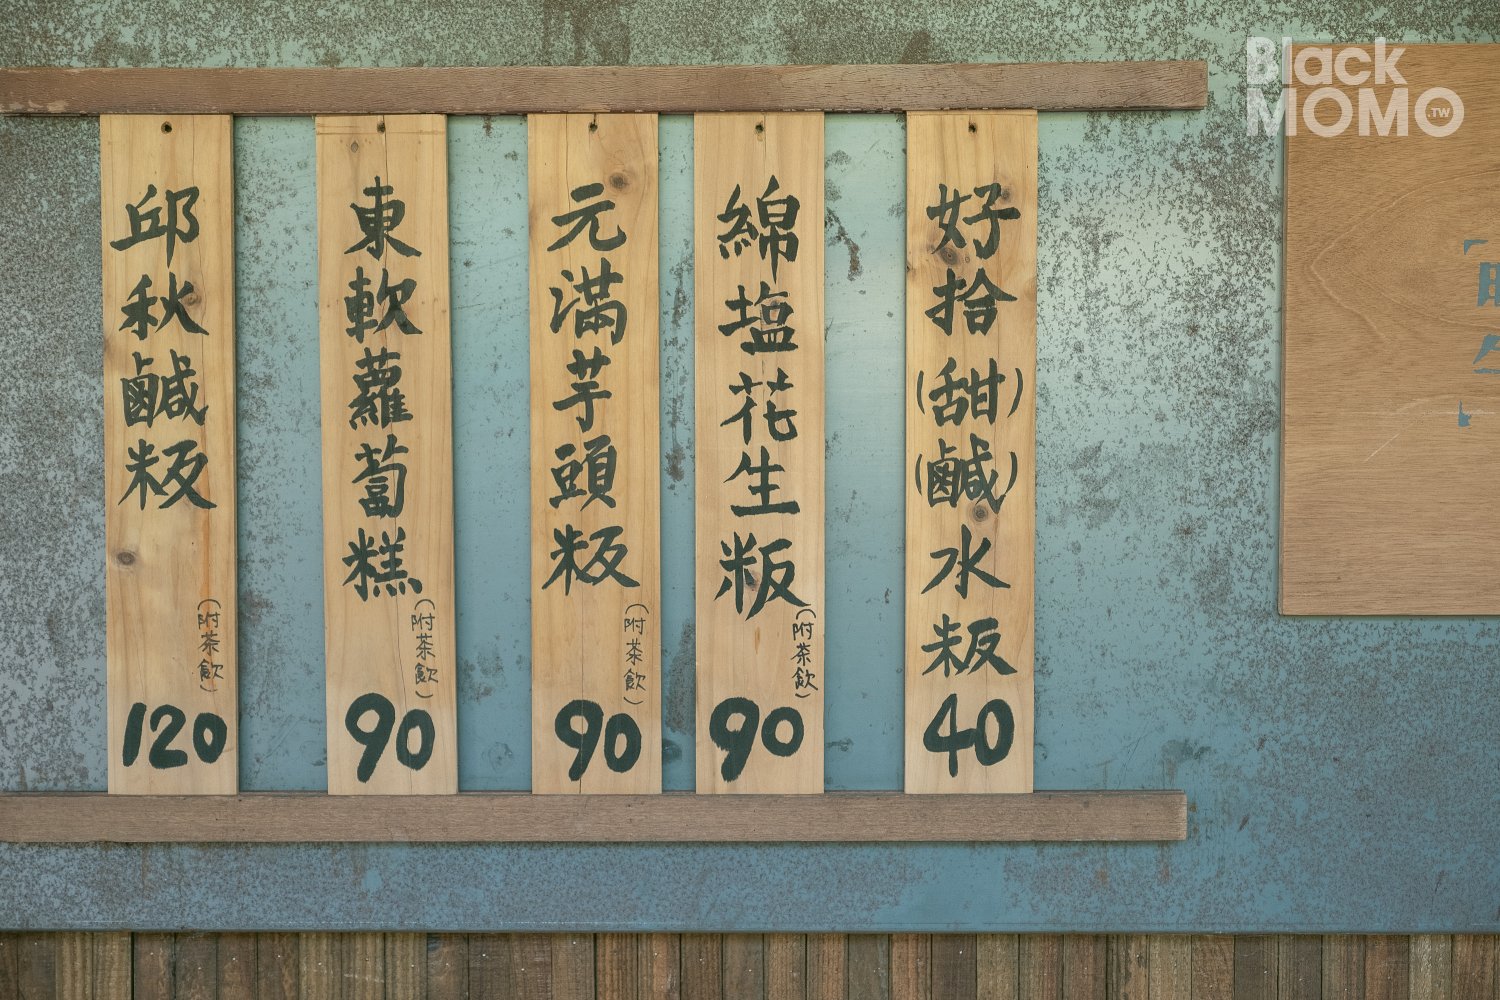 Black
MOMO.TW
好拾(甜)(鹹)水粄
40
綿塩花生粄
(附茶飲)
90
元滿芋頭粄
(附茶飲)
90
東軟蘿蔔糕
(附茶飲)
90
邱秋鹹粄
(附茶飲)
120